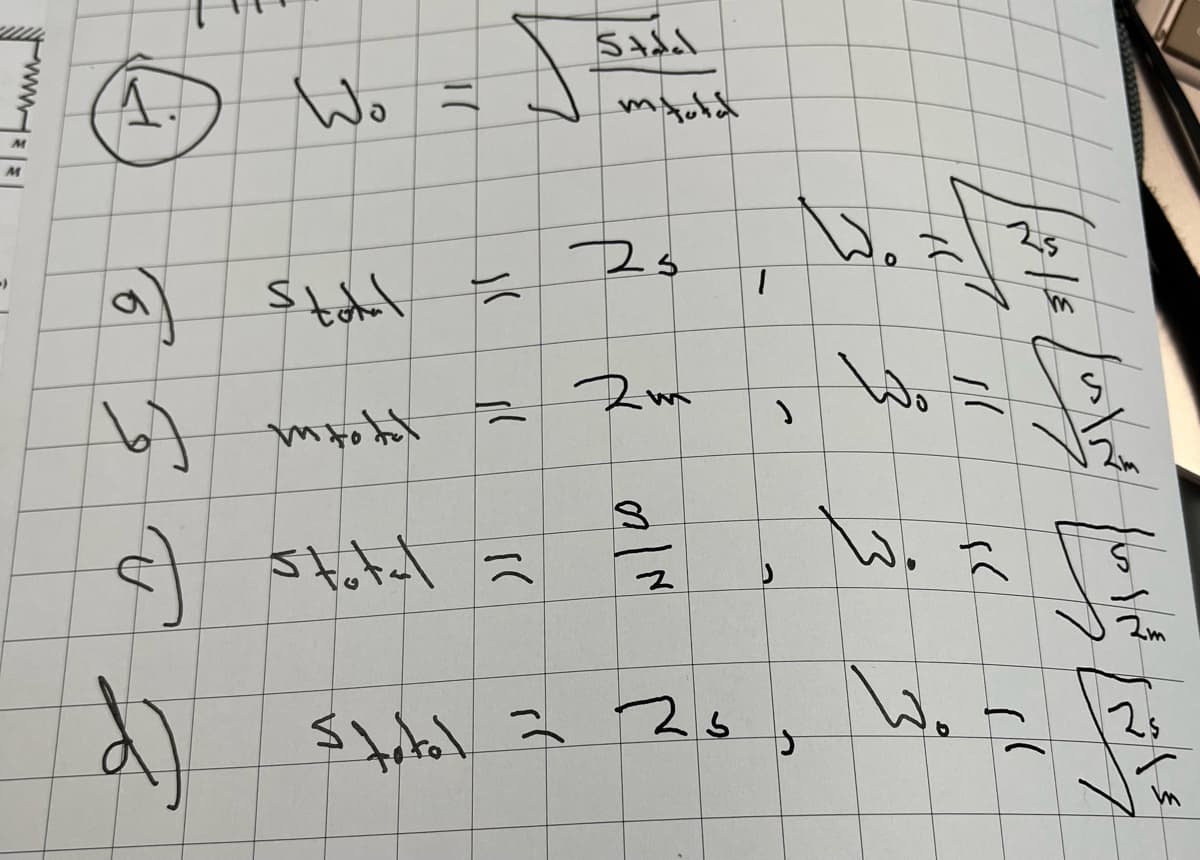 1. W₀ = √(Stotal / mtotal)
a) Stotal = 2s, W₀ = √(2s / m)
b) mtotal = 2m, W₀ = √(s / 2m)
c) Stotal = s / 2, W₀ = √(s / 2m)
d) Stotal = 2s, W₀ = √(2s / m)
M
M